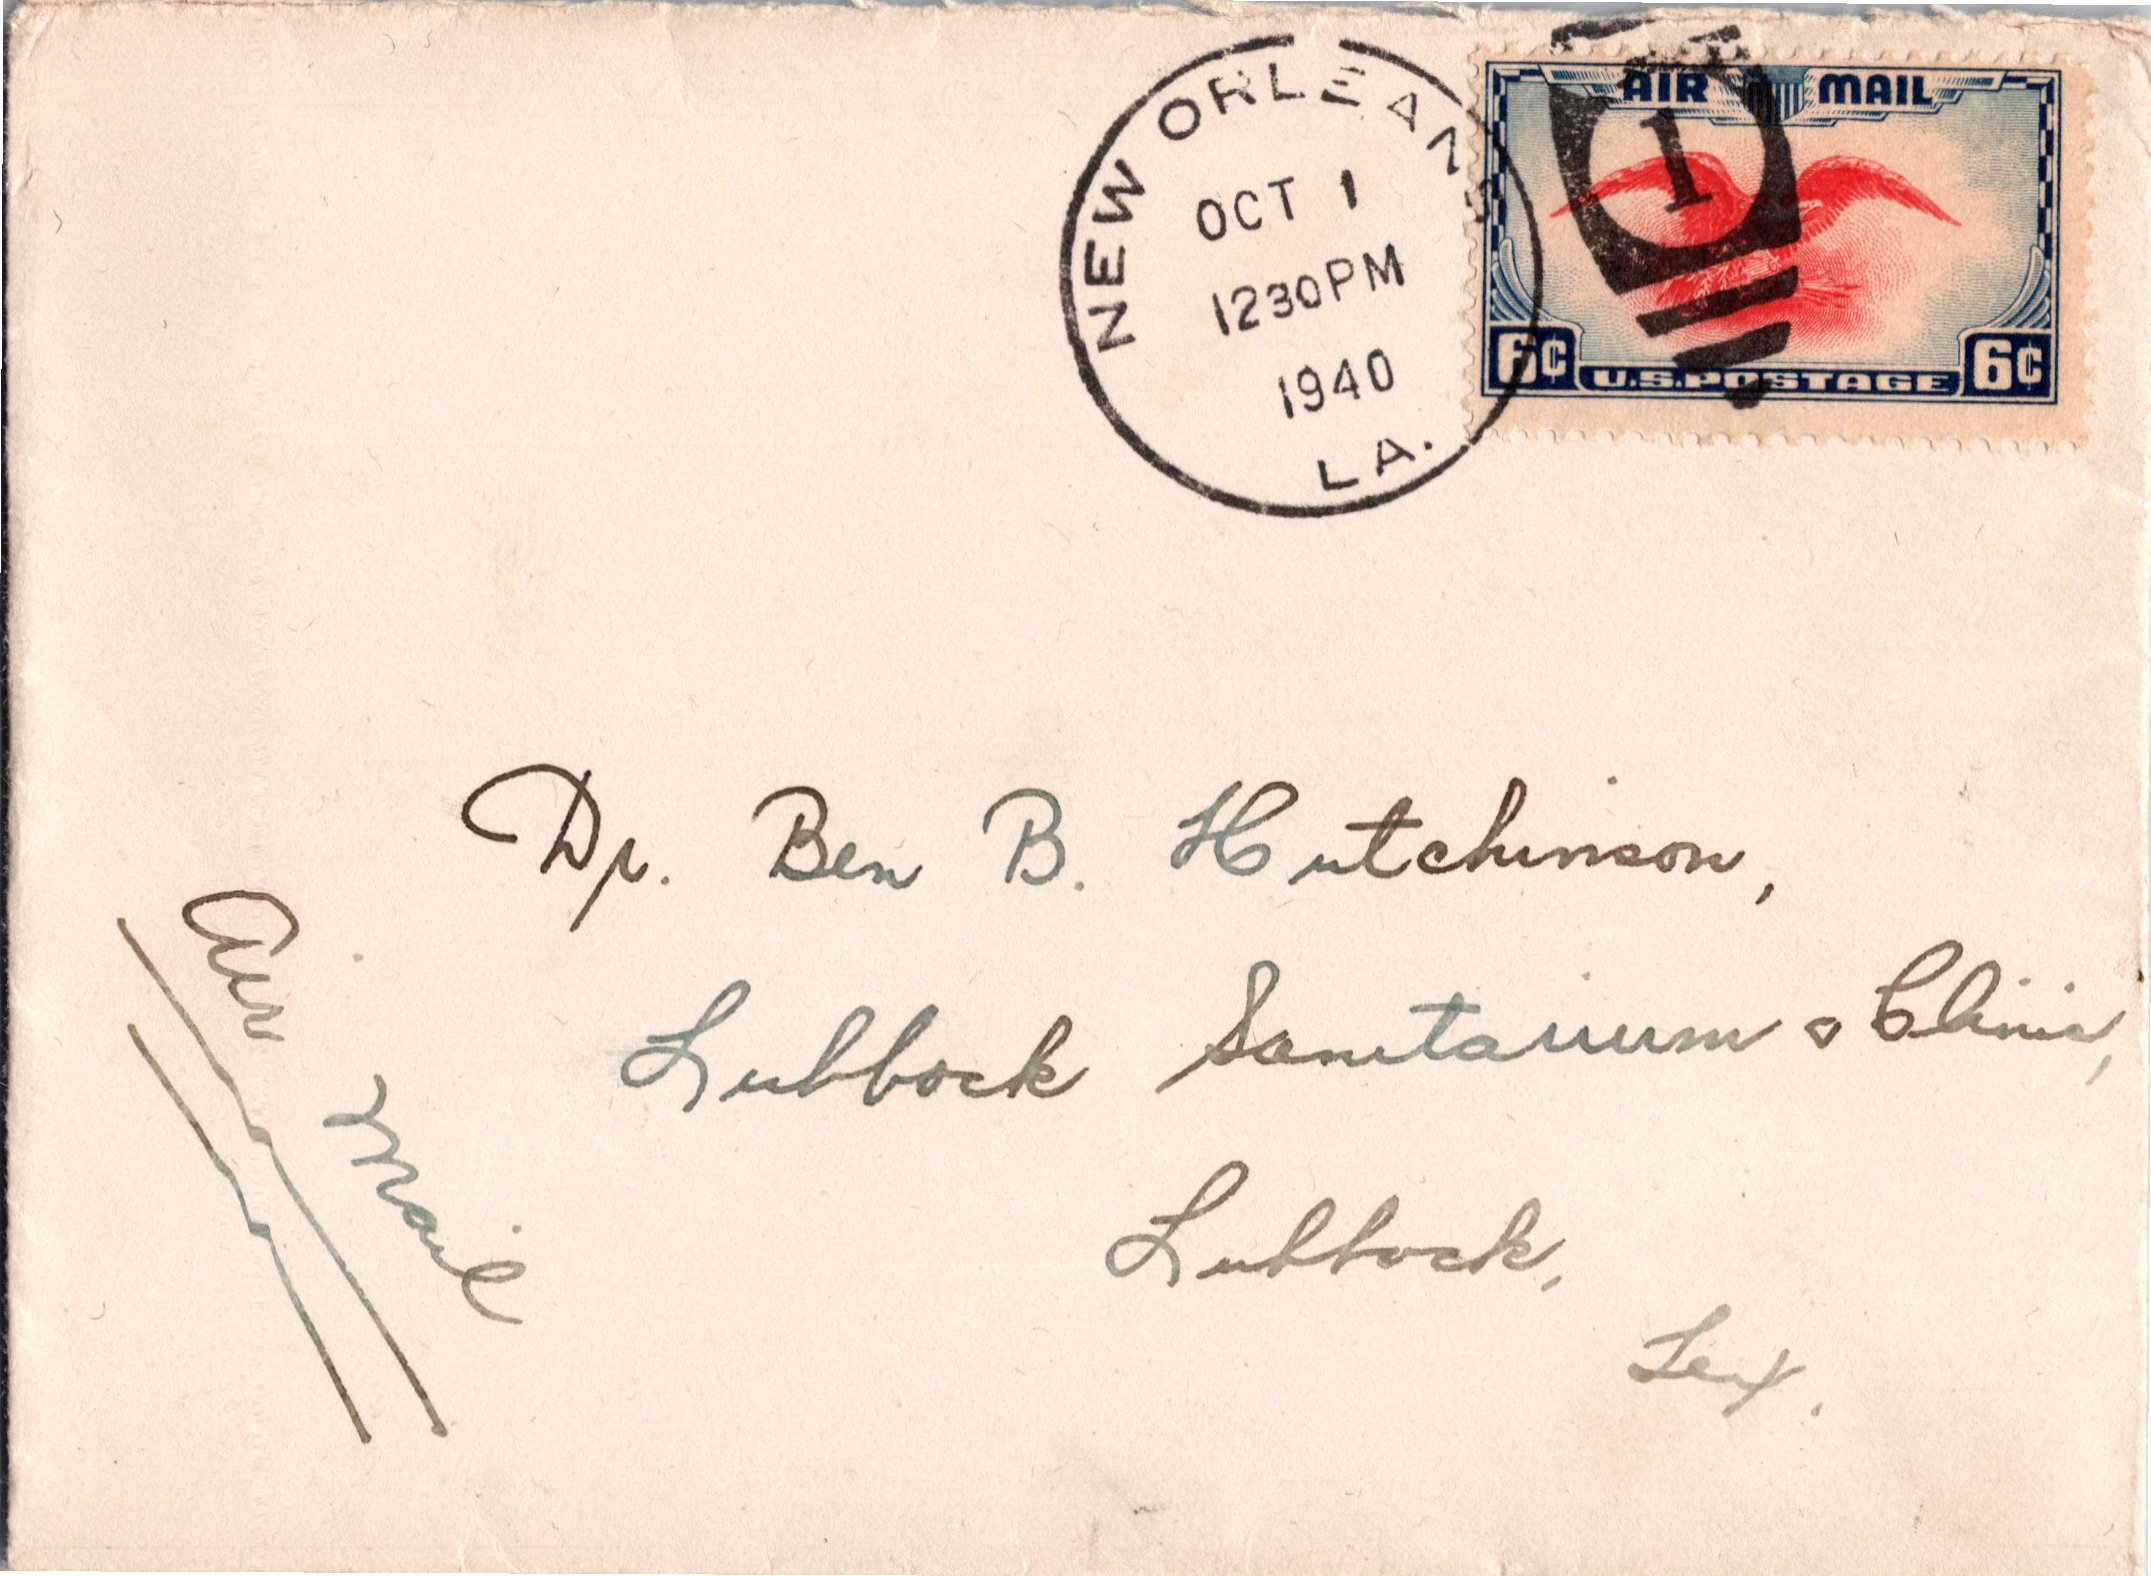 NEW ORLEANS
OCT 1
1230PM
1940
LA.
1
AIR MAIL
6¢ U.S.POSTAGE 6¢
Dr. Ben B. Hutchinson,
Lubbock Sanitarium & Clinic,
Lubbock,
Tex.
Air Mail